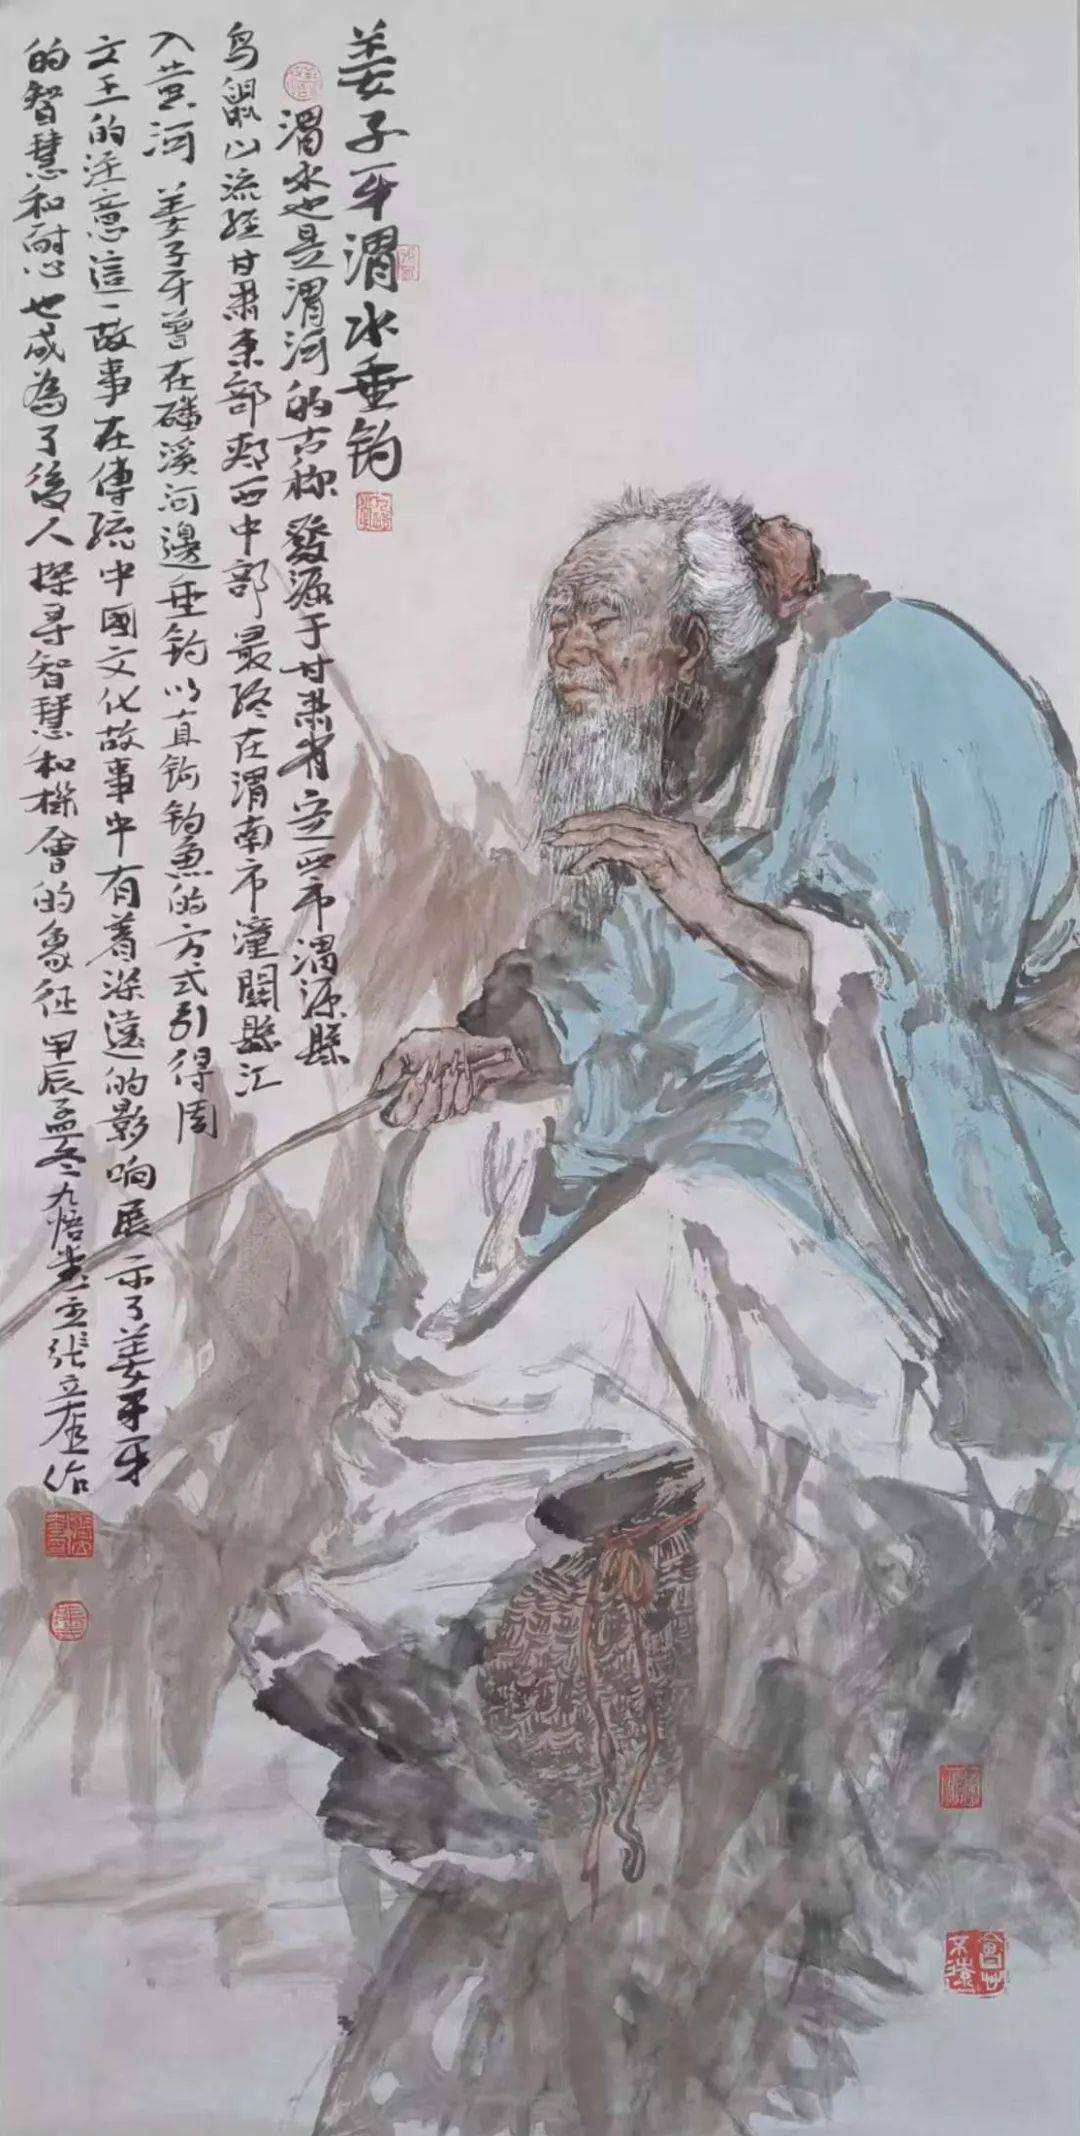 姜子牙渭水垂钓
渭水也是渭河的古称發源于甘肃省定西市渭源縣
鸟鼠山流经甘肃東部陕西中部最终在渭南市潼關縣汇
入黄河 姜子牙曾在磻溪河邊垂钓以直钩钓魚的方式引得周
文王的注意這一故事在傳統中國文化故事中有着深遠的影响展示了姜子牙
的智慧和耐心也成為了後人探寻智慧和機會的象征 甲辰孟冬九悟堂主張立奎作